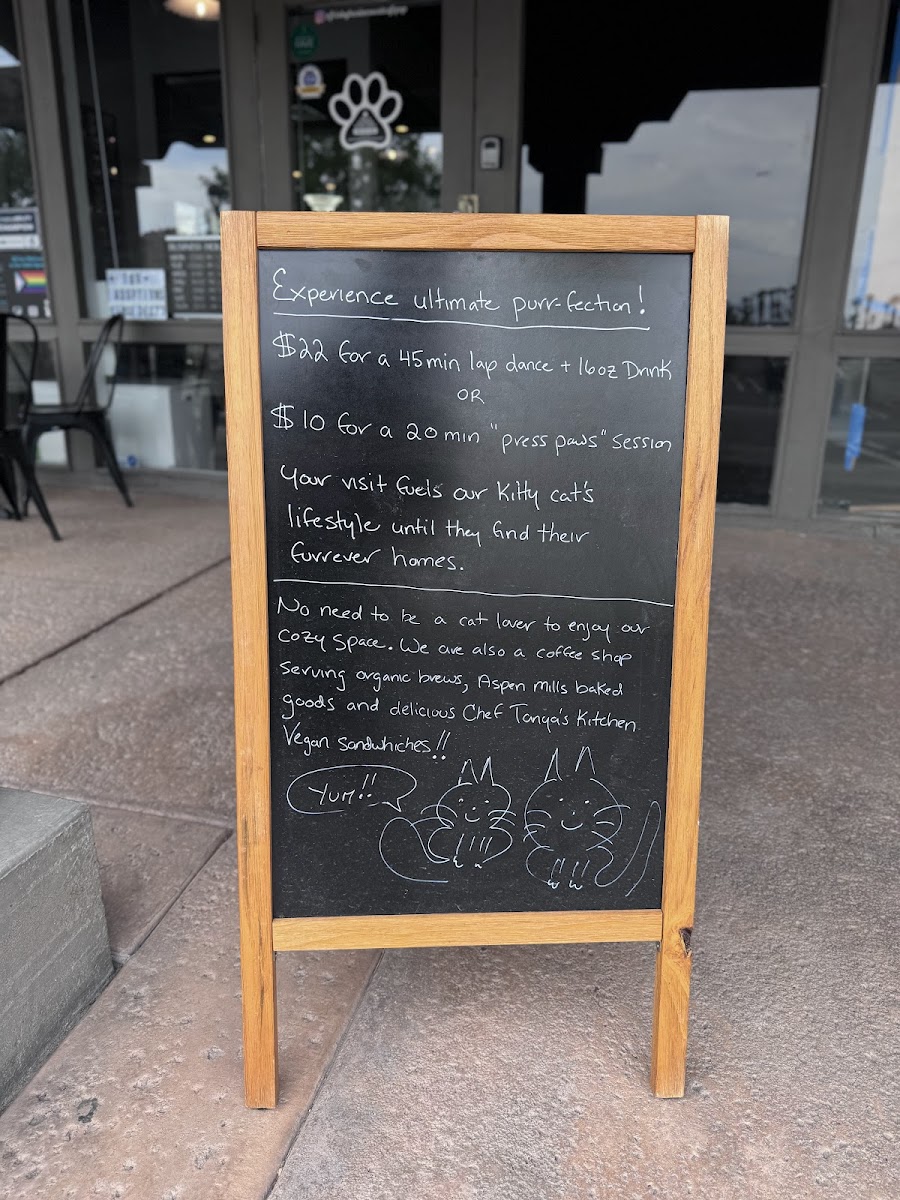 Experience ultimate purr-fection!
$22 for a 45min lap dance + 16oz Drink
OR
$10 for a 20min "press paws" session
Your visit fuels our Kitty cat's
lifestyle until they find their
furrever homes.
No need to be a cat lover to enjoy our
cozy space. We are also a coffee shop
serving organic brews, Aspen Mills baked
goods and delicious Chef Tanya's Kitchen
Vegan sandwhiches!!
YUM!!